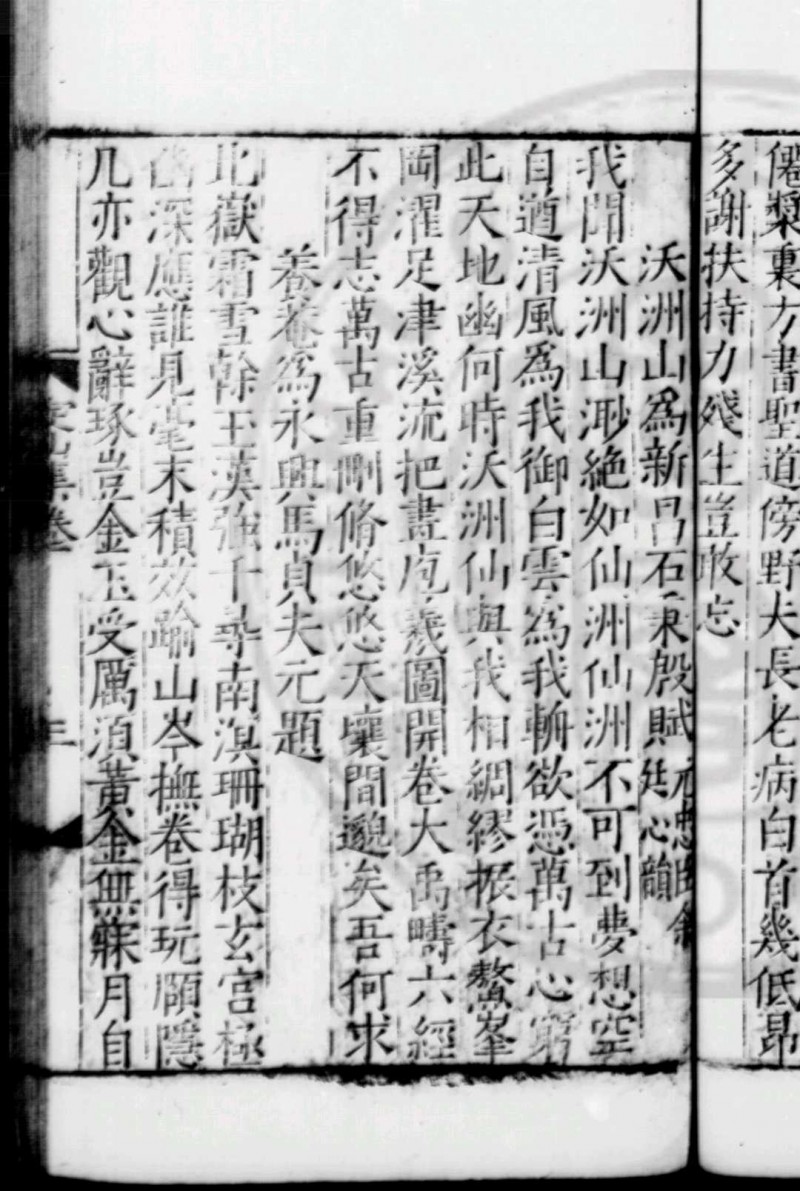 僊槳裏方書聖道傍野夫長老病白首幾低昂
多謝扶持力殘生豈敢忘
沃洲山爲新昌石秉殷賦
廷心韻
我聞沃洲山渺絶如仙洲仙洲不可到夢想空
自遒清風爲我御白雲爲我輈欲憑萬古心窮
此天地幽何時沃洲仙與我相綢繆振衣鰲峯
岡濯足津溪流把畫庖羲圖開卷大禹疇六經
不得志萬古重刪脩悠悠天壤間邈矣吾何求
養菴爲永興馬貞夫元題
北嶽霜雪榦玉漢強千尋南溟珊瑚枝玄宮極
幽深應誰見毫末積效踰山岑撫卷得玩頤隱
几亦觀心辭琢豈金玉受厲須黃金無寐月自
集卷